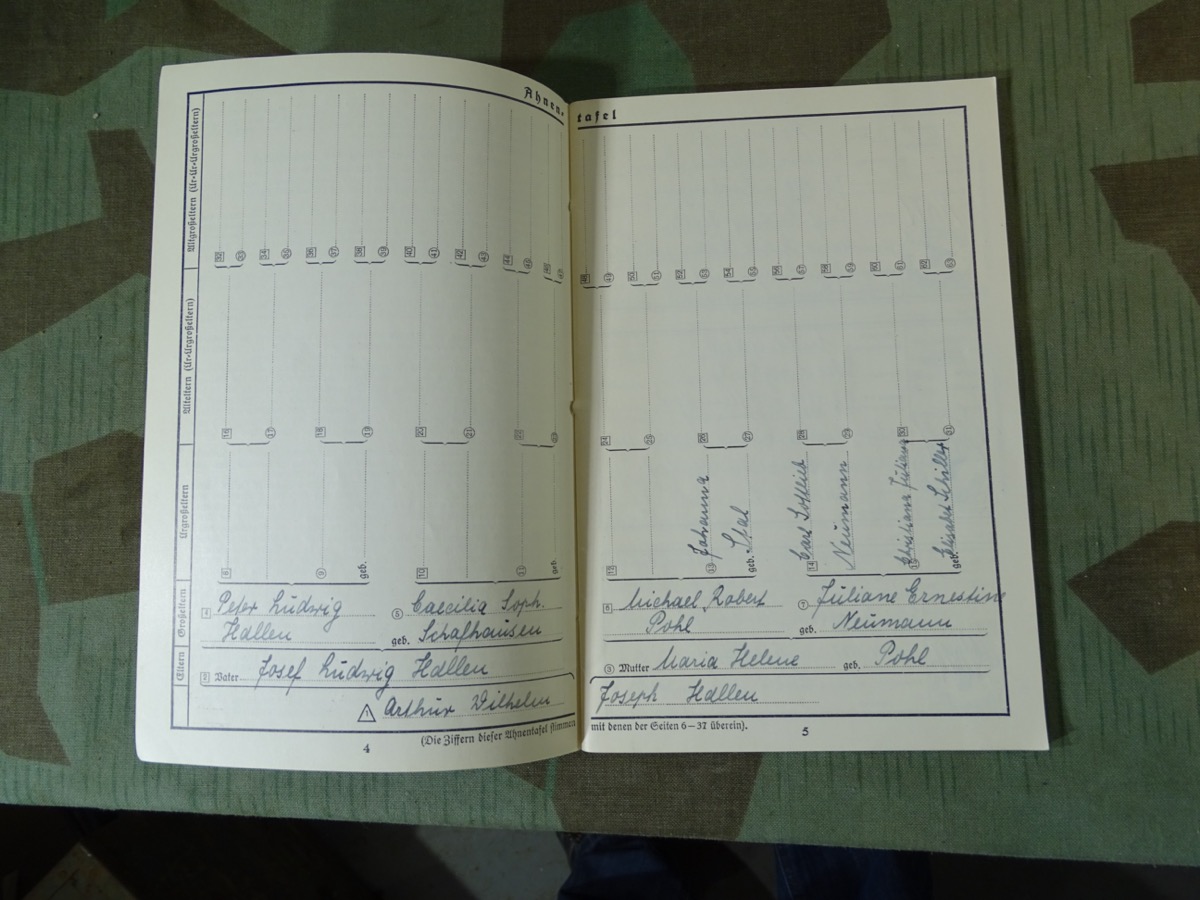 Ahnen-
tafel
Altgroßeltern (Ur-Ur-Urgroßeltern)
32 33 34 35 36 37 38 39 40 41 42 43 44 45 46 47
48 49 50 51 52 53 54 55 56 57 58 59 60 61 62 63
Alteltern (Ur-Urgroßeltern)
16 17 18 19 20 21 22 23
24 25 26 27 28 29 30 31
Urgroßeltern
8 9 geb. 10 11 geb.
12
13 Johanna
geb. Stal
14 Carl Gottlieb
Neumann
15 Christiane Juliane
geb. Elisabet Schiller
Großeltern
4 Peter Ludwig
Hallen
5 Caecilia Soph.
geb. Schafhausen
6 Michael Robert
Pohl
7 Juliane Ernestine
geb. Neumann
Eltern
2 Vater Josef Ludwig Hallen
3 Mutter Maria Helene geb. Pohl
1 Arthur Wilhelm
Joseph Hallen
(Die Ziffern dieser Ahnentafel stimmen
mit denen der Seiten 6–37 überein).
4
5